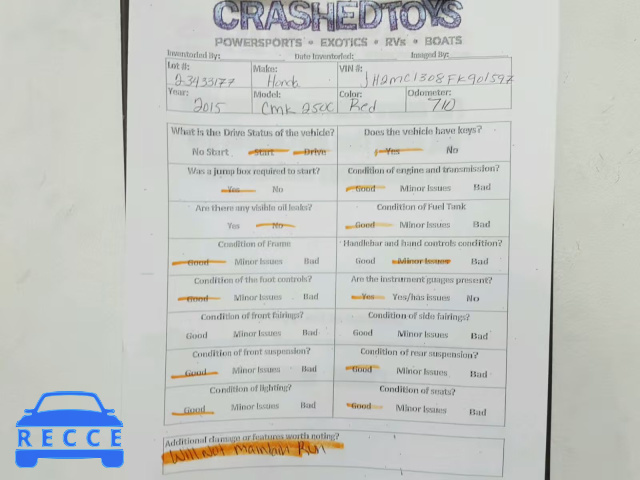 CRASHEDTOYS
POWERSPORTS • EXOTICS • RVs • BOATS
Inventoried By: Date Inventoried: Imaged By:
Lot #: Make: VIN #:
23433177 Honda JH2MC1308FK901597
Year: Model: Color: Odometer:
2015 CMK 250C Red 710
What is the Drive Status of the vehicle? Does the vehicle have keys?
No Start Start Drive Yes No
Was a jump box required to start? Condition of engine and transmission?
Yes No Good Minor Issues Bad
Are there any visible oil leaks? Condition of Fuel Tank
Yes No Good Minor Issues Bad
Condition of Frame Handlebar and hand controls condition?
Good Minor Issues Bad Good Minor Issues Bad
Condition of the foot controls? Are the instrument guages present?
Good Minor Issues Bad Yes Yes/has issues No
Condition of front fairings? Condition of side fairings?
Good Minor Issues Bad Good Minor Issues Bad
Condition of front suspension? Condition of rear suspension?
Good Minor Issues Bad Good Minor Issues Bad
Condition of lighting? Condition of seats?
Good Minor Issues Bad Good Minor Issues Bad
Additional damage or features worth noting?
Will not maintain Run
RECCE